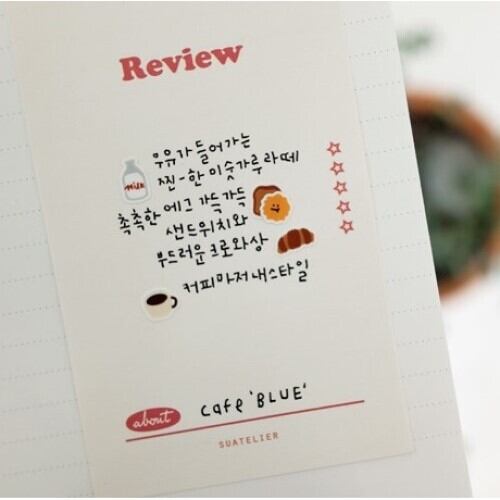 Review
우유가 들어가는
milk
찐-한 미숫가루 라떼
촉촉한 에그 가득가득
샌드위치와
부드러운 크로와상
커피마저 내스타일
about
cafe 'BLUE'
SUATELIER